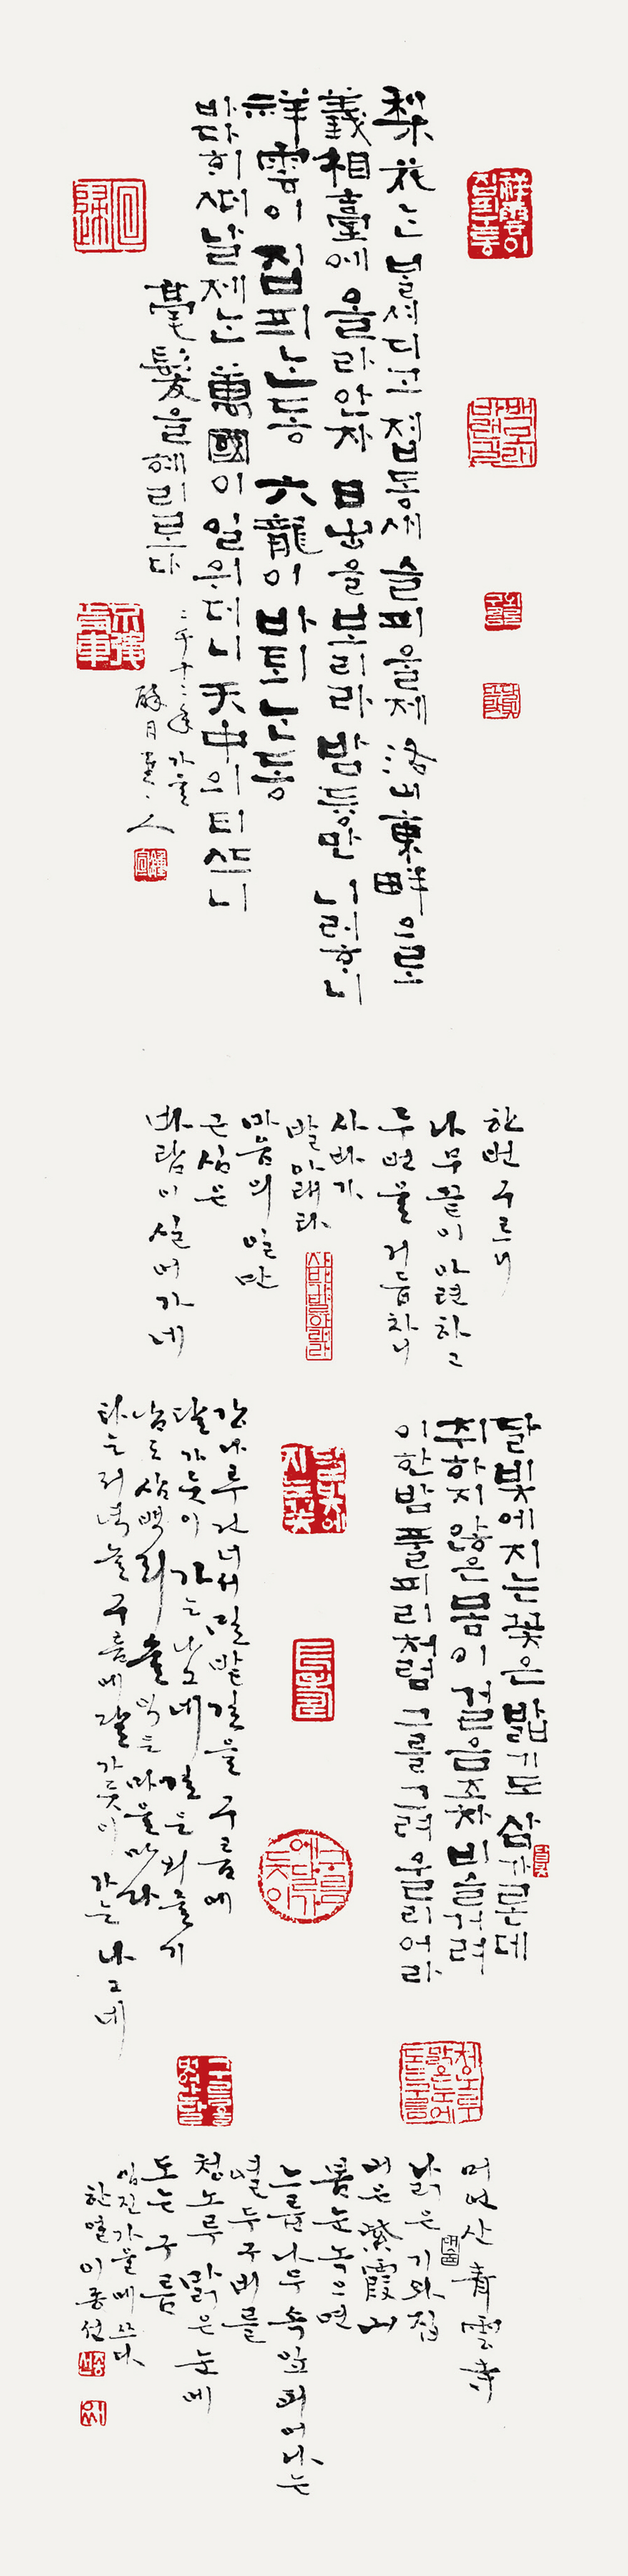 梨花는 불셔디고 졉동새 슬피울제 洛山東畔으로
義相臺에 올라안자 日出을보리라 밤듕만 니러ᄒᆞ니
祥雲이 집픠ᄂᆞᆫ동 六龍이 바퇴ᄂᆞᆫ동
바다ᄒᆡ 떠날제ᄂᆞᆫ 萬國이 일위더니 天中의 티ᄯᅳ니
毫髮을 혜리로다
二千十二年 가을
醉月堂主人
한번 구르니
나무끝이 아련하고
두번을 거듭차니
사바가
발아래라
마음의 일만
근심은
바람이 실어가네
달빛에지는꽃은 밟기도 삼가론데
취하지않은몸이 걸음조차 비슬거려
이한밤 풀피리처럼 그를그려 울리어라
강나루 건너서 밀밭길을 구름에
달가듯이 가는 나그네 길은 외줄기
남도 삼백리 술익는 마을마다
타는 저녁놀 구름에 달가듯이 가는 나그네
머언산 青雲寺
낡은 기와집
산은 紫霞山
봄눈 녹으면
느릅나무 속잎 피어나는
열두구비를
청노루 맑은 눈에
도는 구름
임진가을에 쓰다
한얼 이종선
祥雲이
집픠ᄂᆞᆫ동
사바가발아래라
달빛에
지는꽃
구름
에달가
듯이
청노루
맑은눈에
도는구름